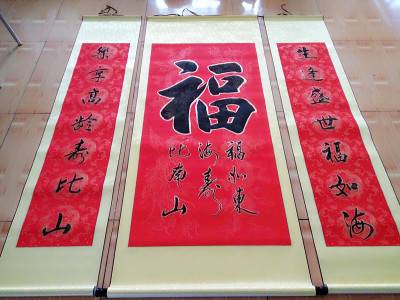 生逢盛世福如海
福
福如東
海寿
比南山
乐享高龄寿比山